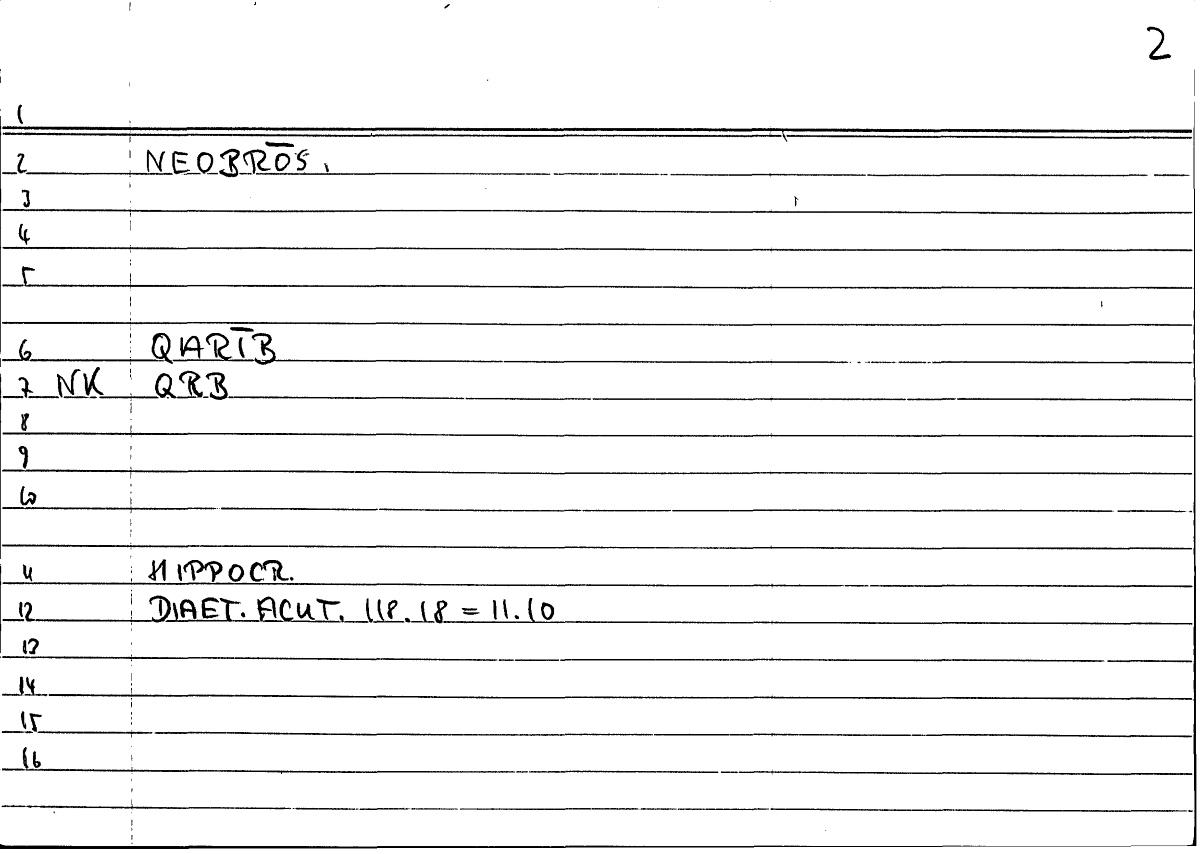 2
1
2 NEOBRŌS.
3
4
5
6 QARĪB
7 NK QRB
8
9
10
11 HIPPOCR.
12 DIAET. ACUT. 118.18 = 11.10
13
14
15
16